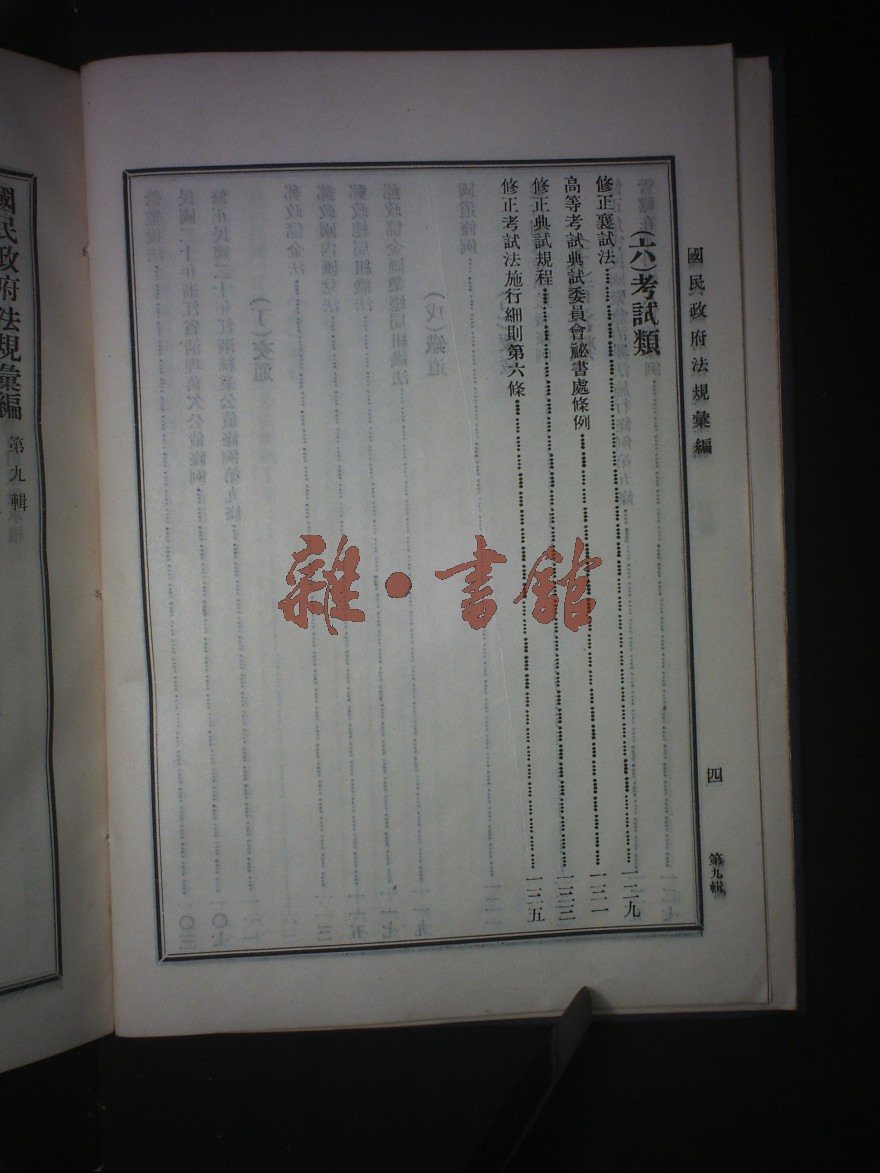 國民政府法規彙編
四
第九輯
(六)考試類
修正襄試法……一二九
高等考試典試委員會祕書處條例……一三一
修正典試規程……一三三
修正考試法施行細則第六條……一三五
雜·書館
國民政府法規彙編
第九輯